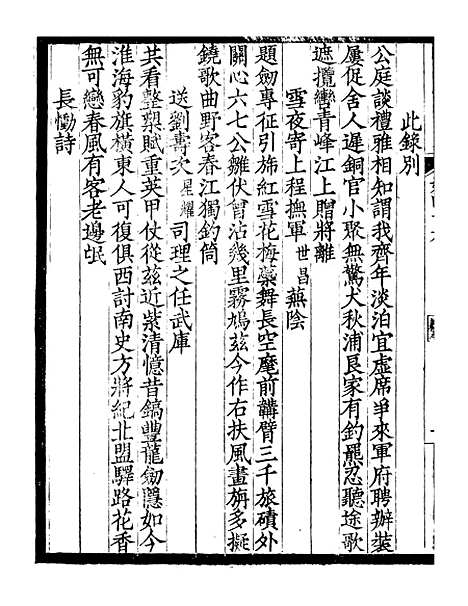 此錄别
公庭談禮雅相知謂我齊年淡泊宜虛席爭來軍府聘辦裝
屢促舍人遲銅官小聚無驚犬秋浦長家有釣罷忍聽途歌
遮攬轡青峰江上贈將離
雪夜寄上程撫軍世昌蕪陰
題劒專征引旆紅雪花梅蘂舞長空麾前韝臂三千旅磧外
關心六七公雛伏曾沾幾里霧鳩兹今作右扶風畫旃多擬
鐃歌曲野客春江獨釣筒
送劉壽次星耀司理之任武庫
共看整槊賦重英甲仗從兹近紫清憶昔鎬豐龍劒隱如今
淮海豹旌橫東人可復俱西討南史方將紀北盟驛路花香
無可戀春風有客老邊氓
長慟詩